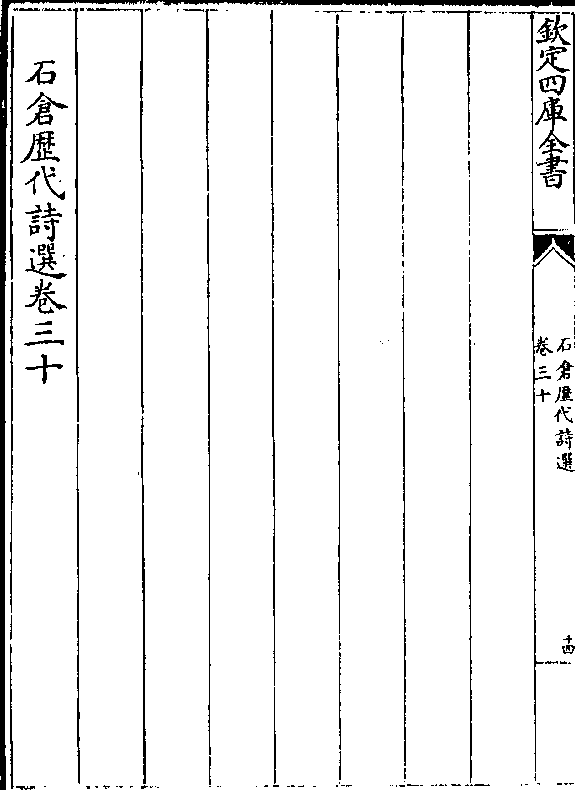 欽定四庫全書
石倉歷代詩選
卷三十
十四
石倉歷代詩選卷三十